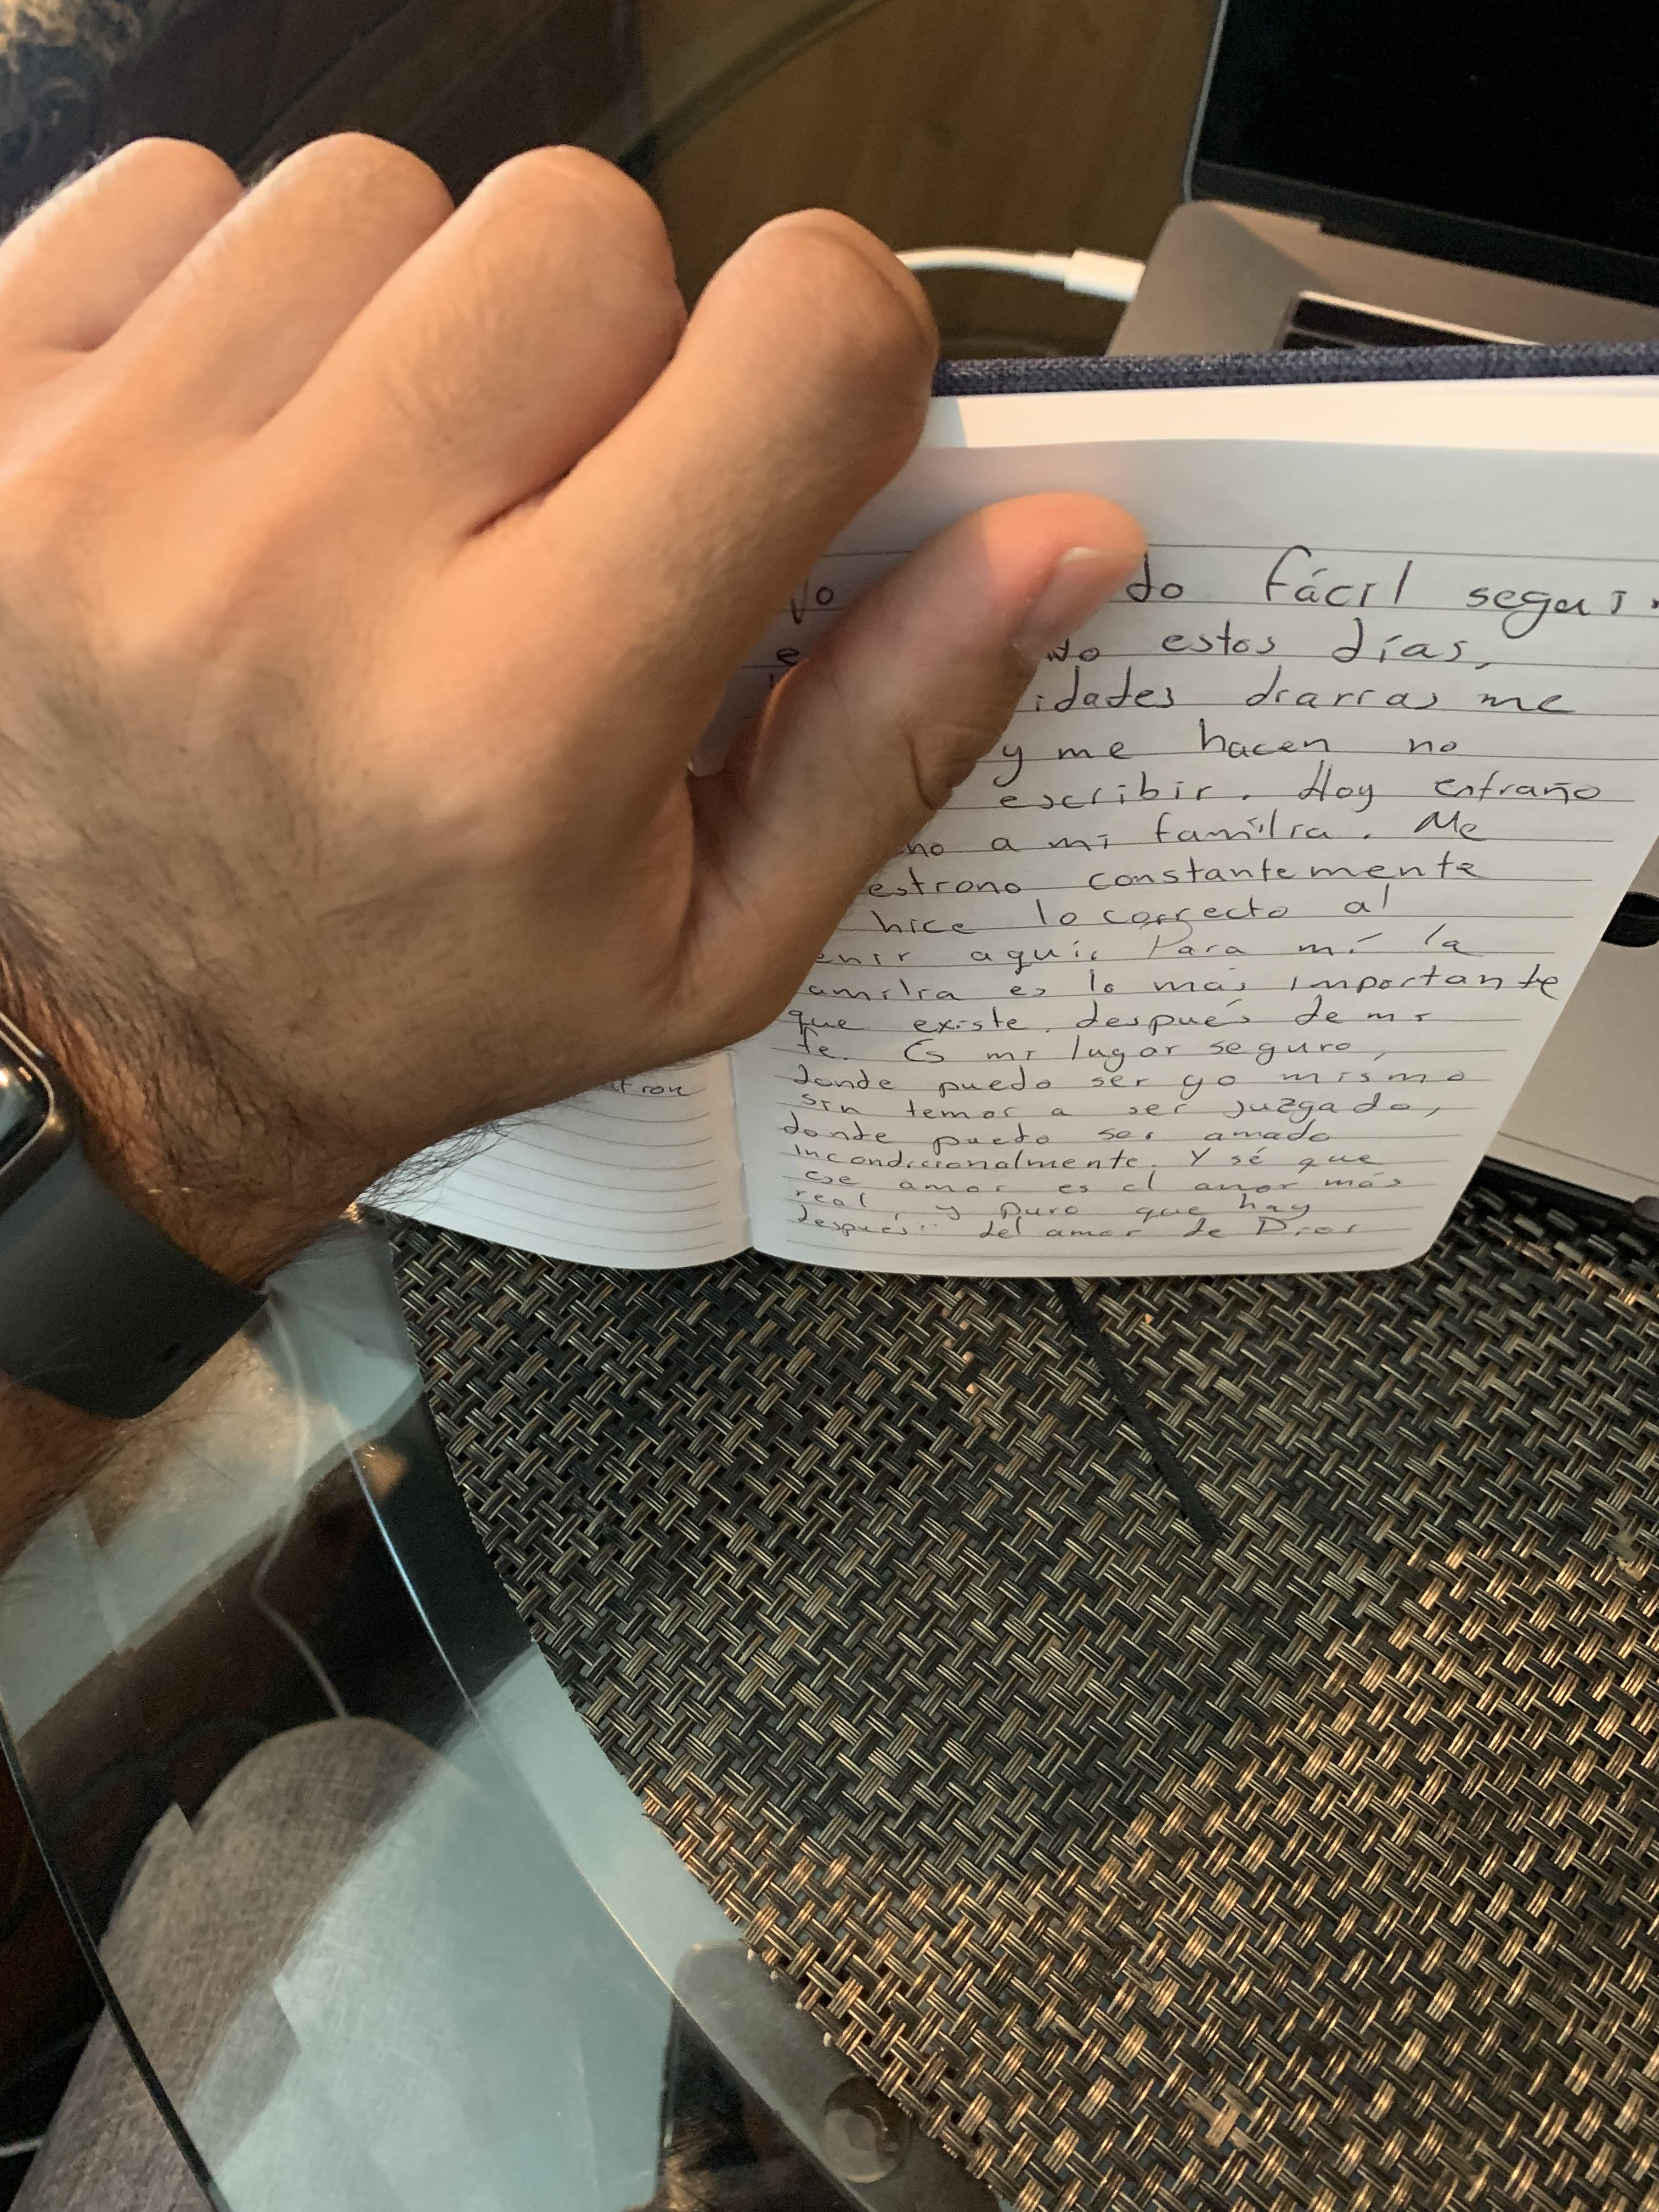 itron
No do fácil seguir
e ndo estos días,
idades diarias me
y me hacen no
escribir. Hoy extraño
ho a mi família. Me
estrono constantemente
hice lo correcto al
enir aquí. Para mí la
amilia es lo más importante
que existe, después de mi
fe. Es mi lugar seguro,
donde puedo ser yo mismo
sin temor a ser juzgado,
donde puedo ser amado
incondicionalmente. Y sé que
ese amor es el amor más
real y puro que hay
después del amor de Dios